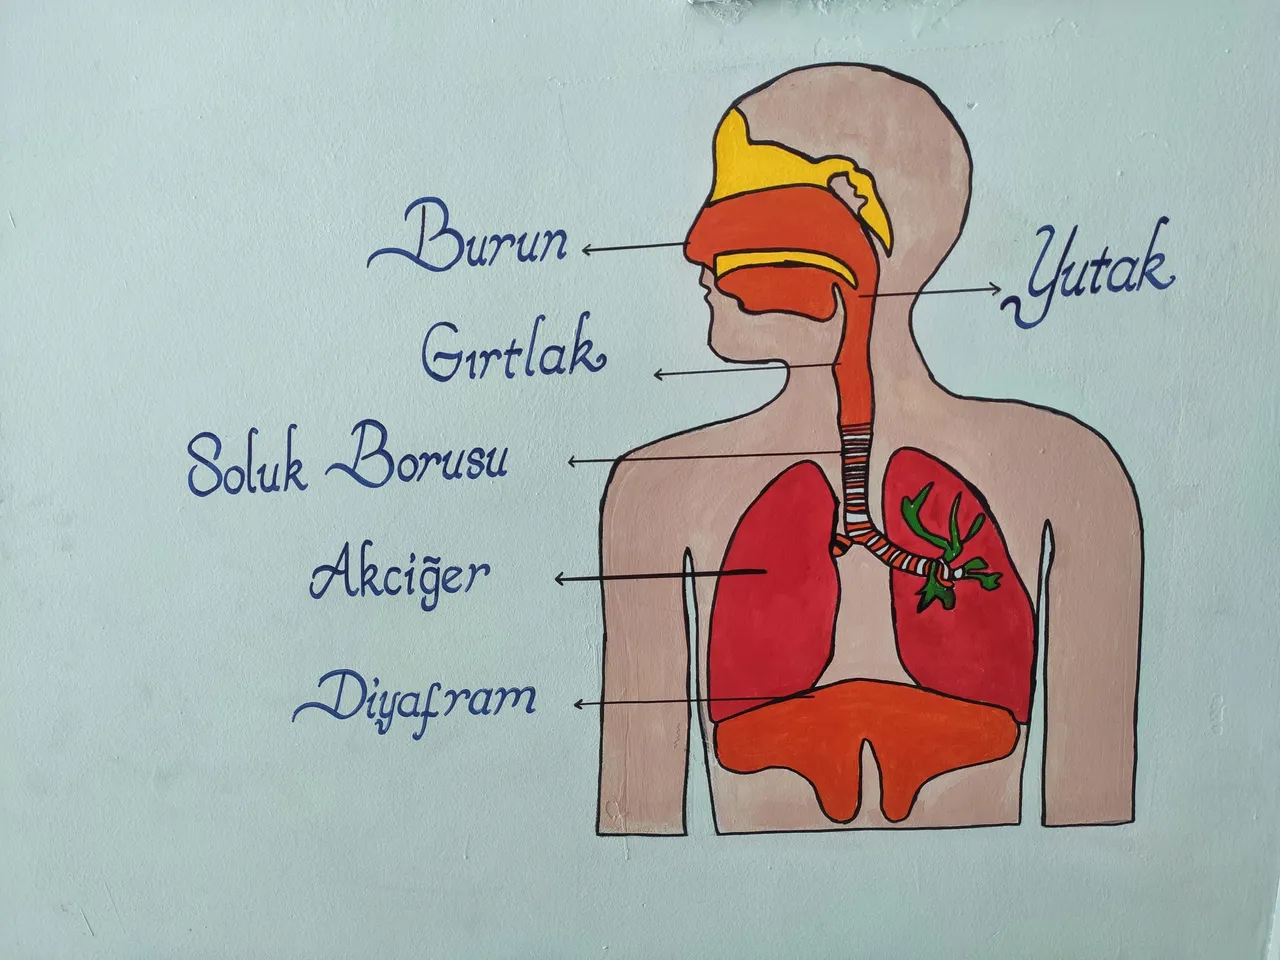 Burun
Yutak
Gırtlak
Soluk Borusu
Akciğer
Diyafram